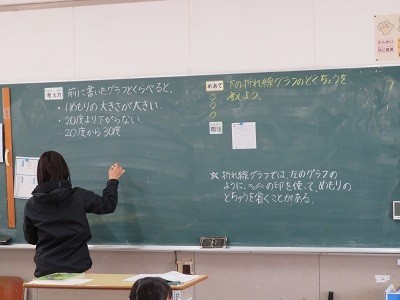 考え方
前に書いたグラフとくらべると、
・1めもりの大きさが大きい。
・20度より下がらない。
20度から30度
めあて
下の折れ線グラフのとくちょうを
考えよう。
問題
☆折れ線グラフでは、左のグラフの
ように、≈の印を使って、めもりの
とちゅうを省くことがある。